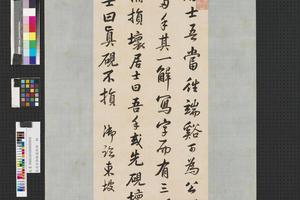 士吾當往端谿可為公
兩手其一解寫字而有三
備損壞居士曰吾手或先硯壞
士曰真硯不損
御臨東坡